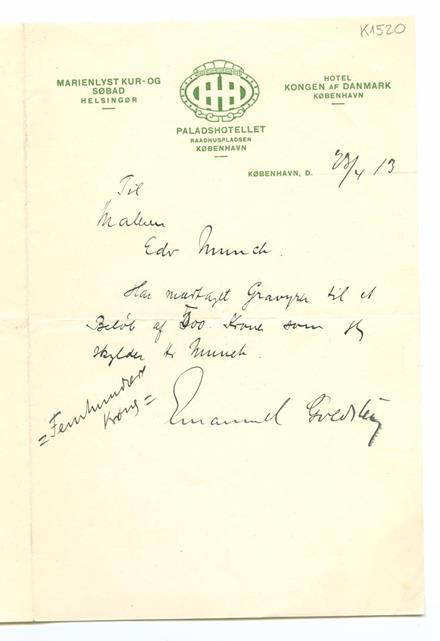 K1520
MARIENLYST KUR- OG
SØBAD
HELSINGØR
HOTEL
KONGEN AF DANMARK
KØBENHAVN
PALADSHOTELLET
RAADHUSPLADSEN
KØBENHAVN
KØBENHAVN, D. 23/4 13
Til
Maleren
Edv Munch.
Har modtaget Gravyrer til et
Beløb af 500 Kroner som jeg
skylder Hr Munch.
Emanuel Goldstein
=Femhundrede
Kroner=